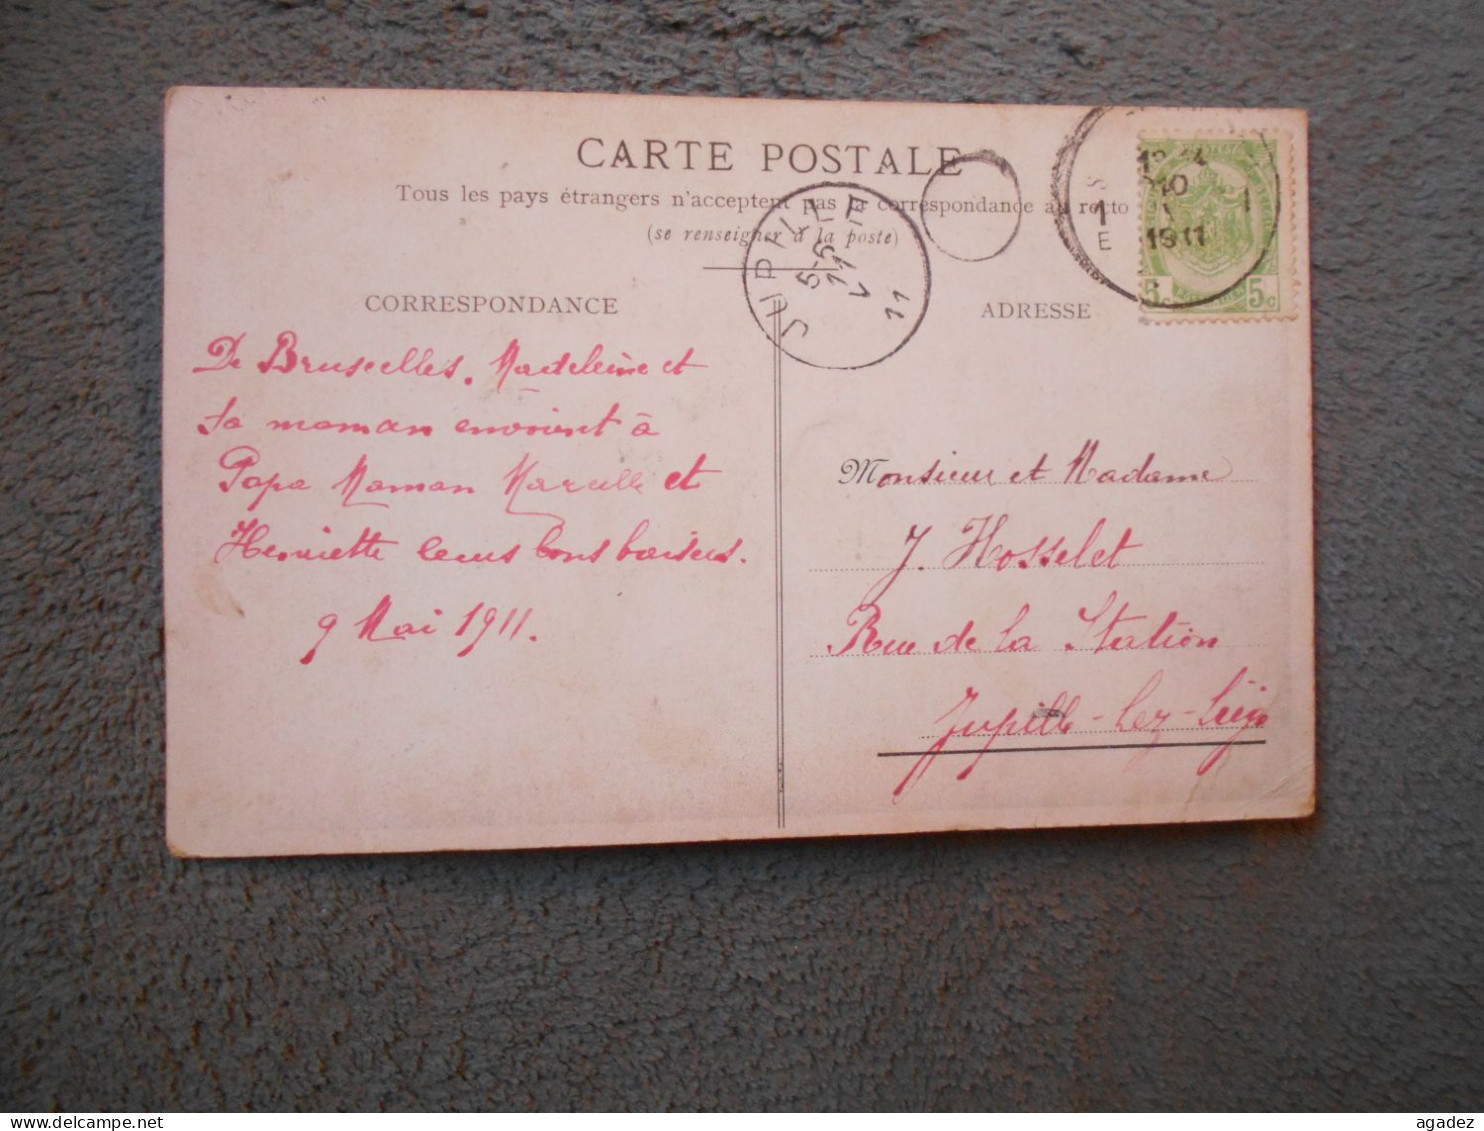 CARTE POSTALE
Tous les pays étrangers n'acceptent pas la correspondance au recto
(se renseigner à la poste)
CORRESPONDANCE
De Bruxelles. Madeleine et
sa maman envoient à
Papa Maman Marcelle et
Henriette leurs bons baisers.
9 Mai 1911.
JUPILLE
5-6
11 V
11
ADRESSE
Monsieur et Madame
J. Hosselet
Rue de la Station
Jupille-lez-Liége
10
1911
1
E
5c 5c
agadez
www.delcampe.net